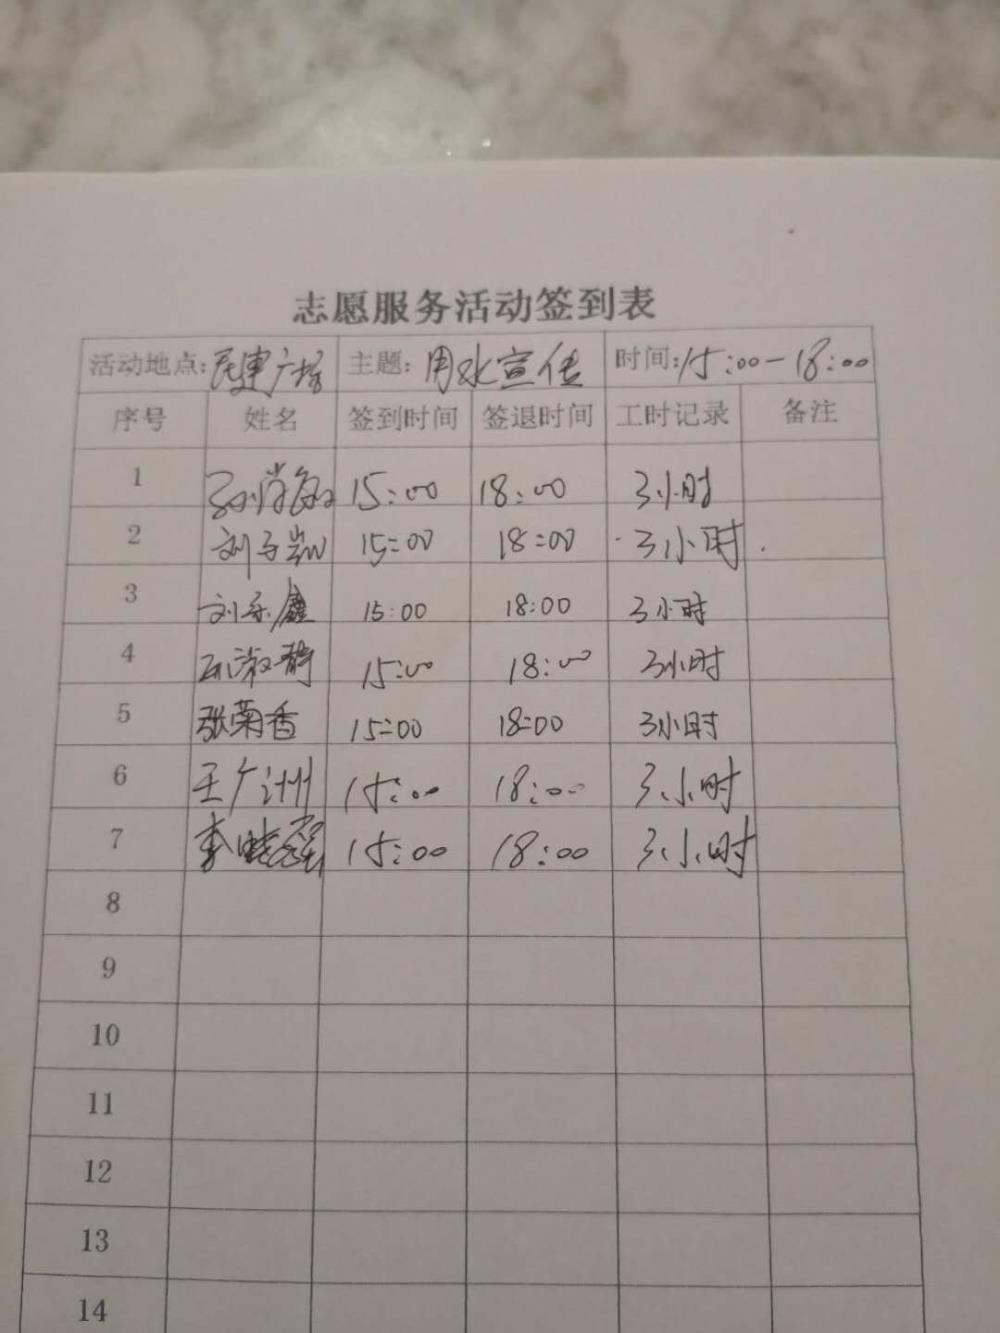 志愿服务活动签到表
活动地点:民建广场 主题:用水宣传 时间:15:00-18:00
序号 姓名 签到时间 签退时间 工时记录 备注
1 15:00 18:00 3小时
2 刘子凯 15:00 18:00 3小时
3 刘乐鑫 15:00 18:00 3小时
4 孙淑静 15:00 18:00 3小时
5 张菊香 15:00 18:00 3小时
6 王广洲 15:00 18:00 3小时
7 李晓 15:00 18:00 3小时
8
9
10
11
12
13
14